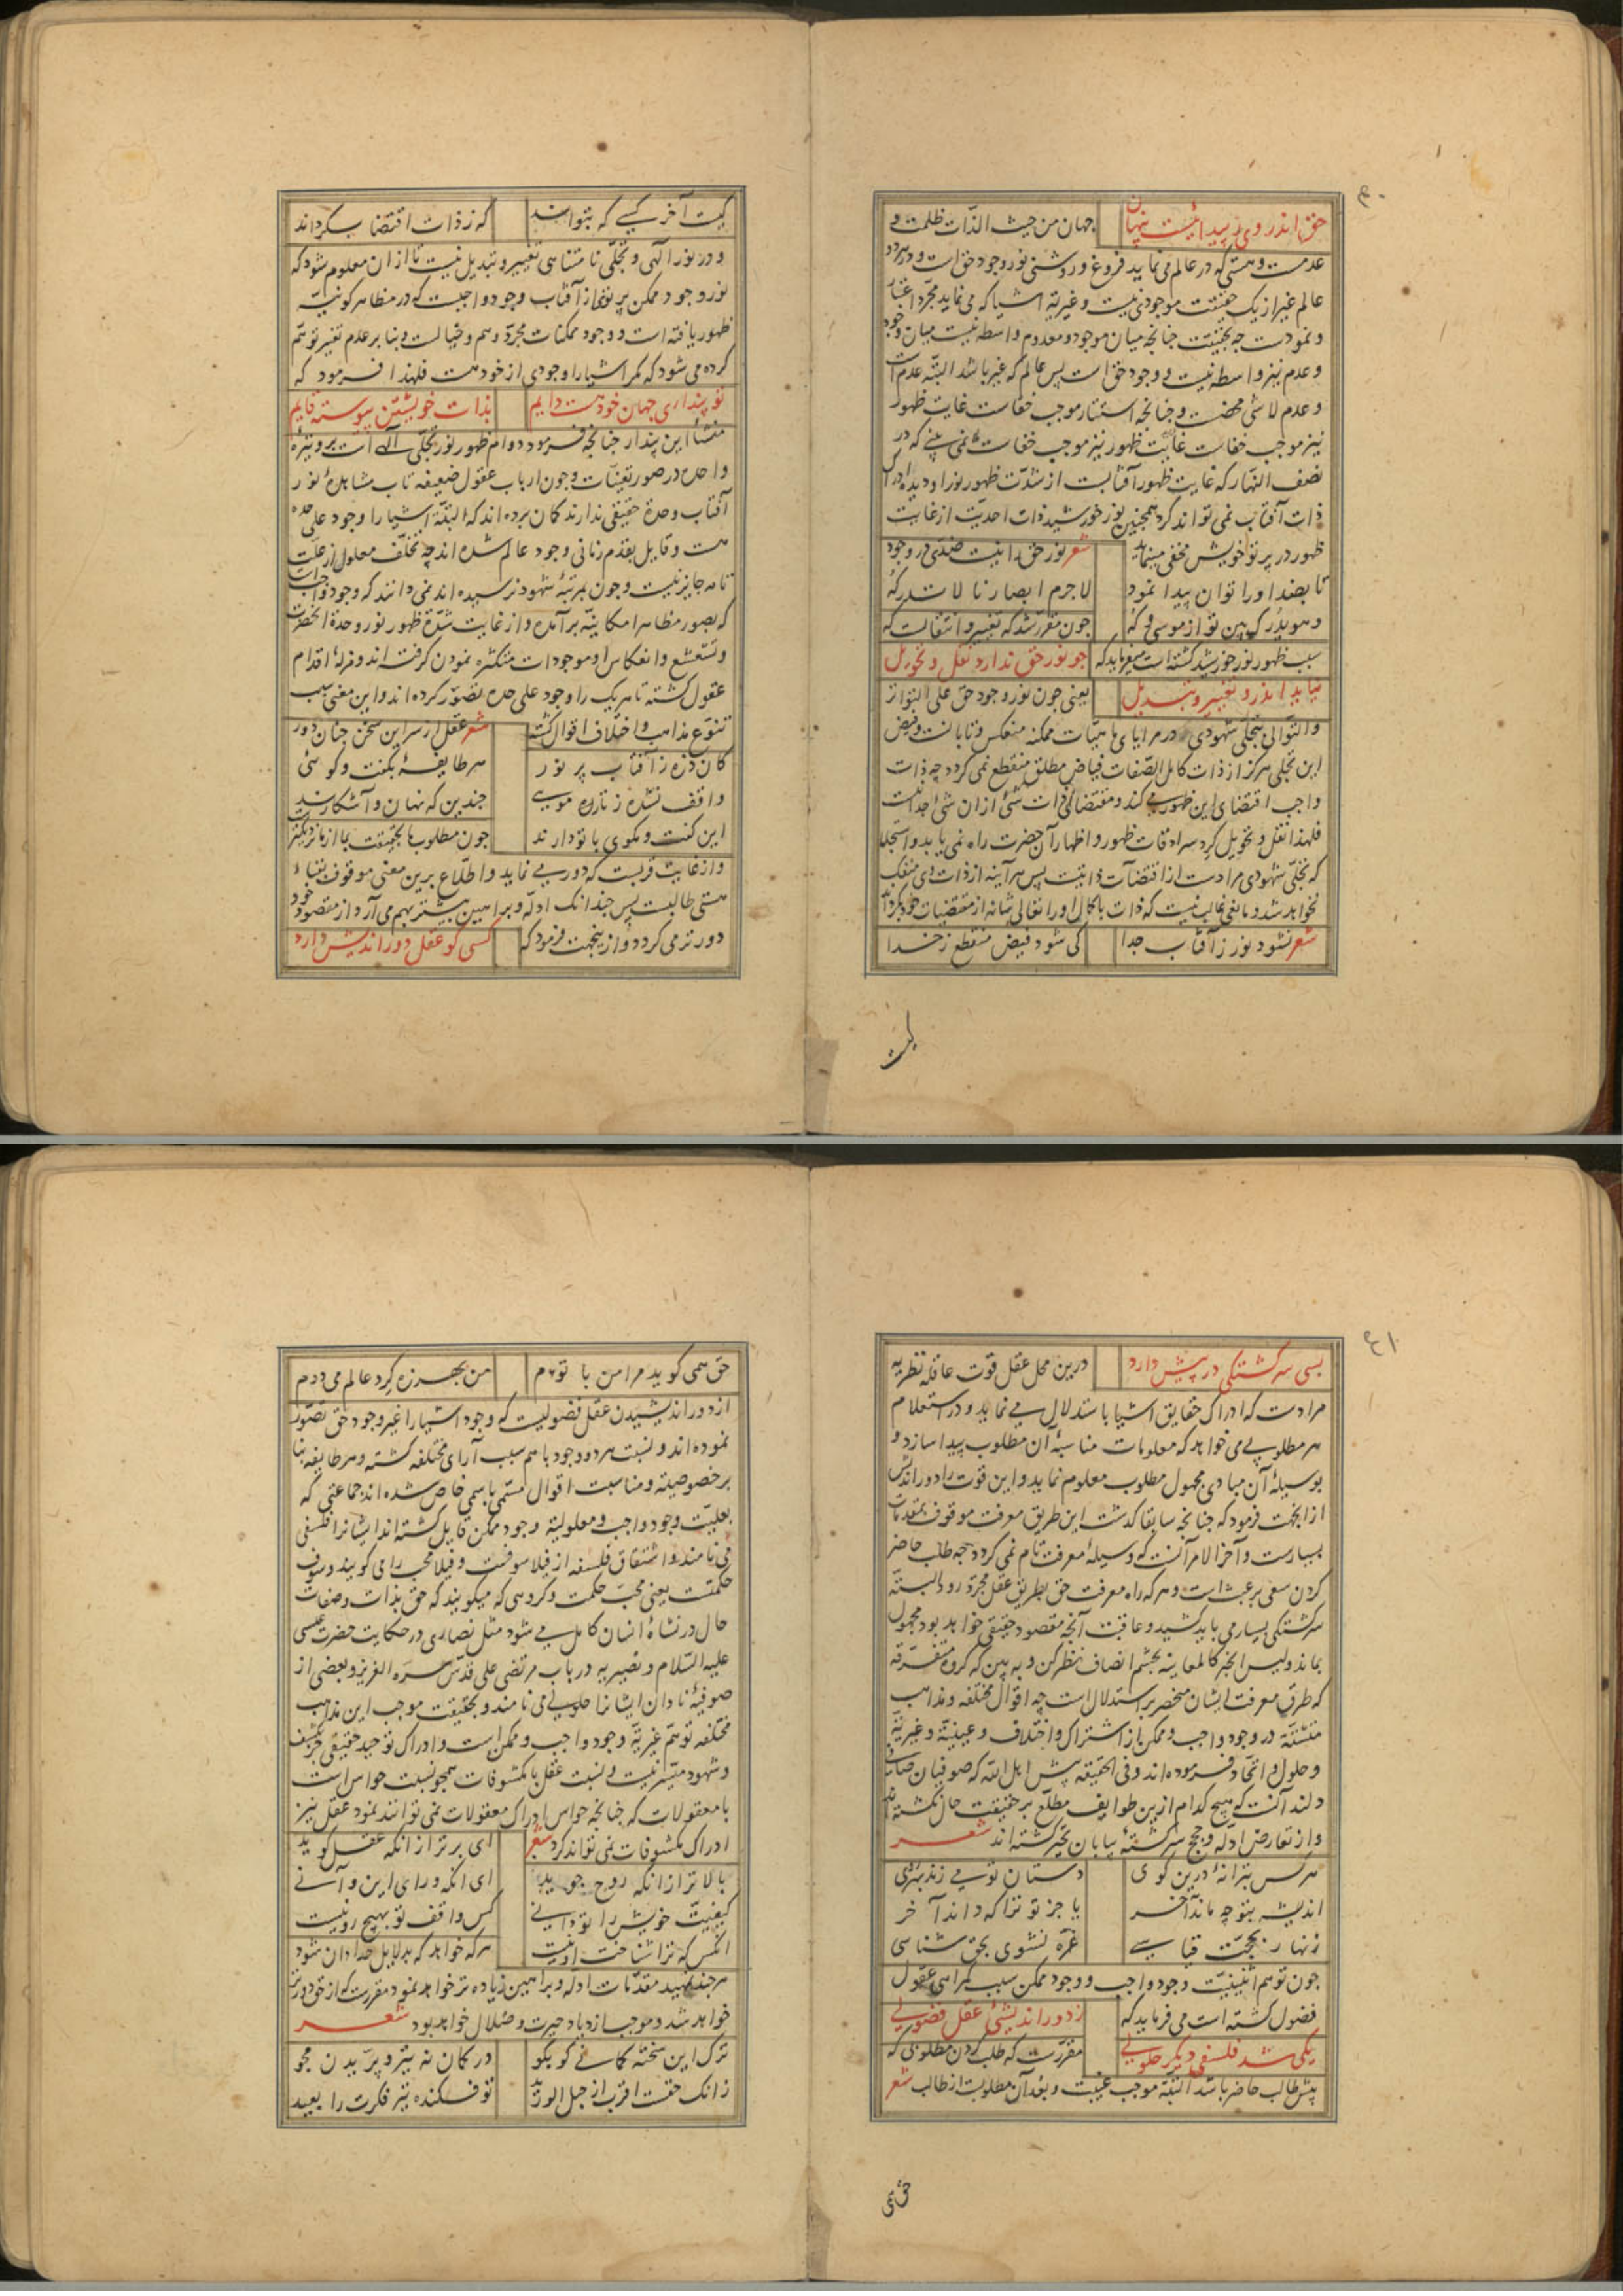 ۴۰
حق اندر وی ز پیدائیست پنهان جهان من حیث الذّات ظلمت و
عدمست و هستی که در عالم می نماید فروغ و روشنی نور وجود حق است و در هر دو
عالم غیر از یک حقیقت موجودی نیست و غیریّة اشیا که می نماید مجرّد اعتبار
و نمودست چه بحقیقت چنانچه میان موجود و معدوم واسطه نیست میان وجود
و عدم نیز واسطه نیست و وجود حق است پس عالم که غیر باشد البتّه عدم است
و عدم لا شئ محضست و چنانچه استتار موجب خفاست غایت ظهور
نیز موجب خفاست غایت ظهور نیز موجب خفاست نمی بینی که در
نصف النهار که غایت ظهور آفتابست از شدّت ظهور نور او دیده ادراک
ذات آفتاب نمی تواند کرد همچنین نور خورشید ذات احدیّت از غایت
ظهور در پرتو خویش مخفی مینماید شعر نور حق را نیست ضدّی در وجود
تا بضد او را توان پیدا نمود لاجرم ابصارنا لا تدرکهُ
و هو یدرک بین تو از موسی و کُه چون مقرّر شد که تغییر و انتقالست که
سبب ظهور نور خورشید گشته است میفرماید که چو نور حق ندارد نقل و تحویل
نیاید اندرو تغییر و تبدیل یعنی چون نور وجود حق علی التواتر
والتّوالی بتجلّی شهودی در مرایای ماهیّات ممکنه منعکس و تابانست و فیض
این تجلّی هرگز از ذات کامل الصّفات فیاض مطلق منقطع نمی گردد چه ذات
واجب اقتضای این ظهور می کند و مقتضای ذات شئ از آن شئ جدا نیست
فلهذا نقل و تحویل گرد سرادقات ظهور و اظهار آن حضرت راه نمی یابد و استجلا
که تجلّی شهودی مرادست از اقتضاآت ذاتیست پس هرآینه از ذات وی منفک
نخواهد شد و مانعی غالب نیست که ذات باکمال او را تعالی شانه از مقتضیات خود بگرداند
شعر نشود نور ز آفتاب جدا کی شود فیض منقطع ز خدا
کیست
کیست آخر کسی که بتواند که ز ذات اقتضا بگرداند
و در نور الهی و تجلّی نامتناهی تغییر و تبدیل نیست تا از آن معلوم شود که
نور وجود ممکن پرتوی از آفتاب وجود واجبست که در مظاهر کونیّه
ظهور یافته است و وجود ممکنات مجرّد وهم و خیالست و بنابر عدم تغیر توهّم
کرده می شود که مگر اشیا را وجودی از خود هست فلهذا فرمود که
تو پنداری جهان خود هست دایم بذات خویشتن پیوسته قایم
منشأ این پندار چنانچه فرمود دوام ظهور نور تجلّی الهی است بر وتیرهٔ
واحده در صور تعیّنات و چون ارباب عقول ضعیفه تاب مشاهدهٔ نور
آفتاب وحدة حقیقی ندارند گمان برده اند که البتّه اشیا را وجود علی حده
هست و قایل بقدم زمانی وجود عالم شده اند چه تخلّف معلول از علّت
تامه جایز نیست و چون بمرتبهٔ شهود نرسیده اند نمی دانند که وجود واجبست
که بصور مظاهر امکانیّه برآمده و از غایت شدّة ظهور نور وحدة آنحضرت
و تشعشع و انعکاس او موجودات متکثره نمودن گرفته اند و مزلهٔ اقدام
عقول گشته تا هر یک را وجود علی حده تصوّر کرده اند و این معنی سبب
تنوّع مذاهب و اختلاف اقوال گشته شعر عقل از سر این سخن چنان دور
کان ذره ز آفتاب پر نور هر طایفهٔ بگفت و گوئی
واقف نشده ز تاره مویی چندین که نهان و آشکارند
این گفت و مگوی با تو دارند چون مطلوب ما بحقیقت بما از ما نزدیکتر
و از غایت قربست که دور می نماید و اطّلاع برین معنی موقوف بفناءِ
هستی طالبست پس چندانک ادلّه و براهین بیشتر بهم می آرد از مقصود خود
دورتر می گردد و ازینجهت فرمود که کسی کو عقل دوراندیش دارد
۴۱
بسی سرگشتگی در پیش دارد درین محل عقل قوت عاقله نظریه
مرادست که ادراک حقایق اشیا باستدلال می نماید و در استعلام
هر مطلوبی می خواهد که معلومات مناسبهٔ آن مطلوب پیدا سازد و
بوسیلهٔ آن مبادی مجهول مطلوب معلوم نماید و این قوت را دوراندیش
از آنجهت فرمود که چنانچه سابقا گذشت این طریق معرفت موقوف بمقدمات
بسیارست و آخر الامر آنست که وسیلهٔ معرفت تام نمی گردد چه طلب حاضر
کردن سعی بر عبث است و هر که راه معرفت حق بطریق عقل مجرّد رود البتّه
سرگشتگی بسیار می باید کشید و عاقبت آنچه مقصود حقیقی خواهد بود مجهول
بماند و لیس الخبر کالمعاینه بچشم انصاف نظر کن و ببین که گروه متفرّقه
که طرق معرفت ایشان منحصر بر استدلال است چه اقوال مختلفه و مذاهب
متشتّته در وجود واجب و ممکن از اشتراک و اختلاف و عینیّة و غیریّة
و حلول و اتّحاد فرموده اند و فی الحقیقه پیش اهل اللّه که صوفیان صاف
دلند آنست که هیچ کدام ازین طوایف مطلّع بر حقیقت حال نگشته اند
و از تعارض ادله و حجج سرگشتهٔ بیابان تحیّر گشته اند شعر
هر کس بترانهٔ درین کوی دستان تو می زند بهر سوی
اندیشه بتو چه ماند آخر یا جز تو ترا که داند آخر
زنهار بحجّت قیاسی غرّه نشوی بحق شناسی
چون توهم اثنینیّت وجود واجب و وجود ممکن سبب گمراهی عقول
فضول گشته است می فرماید که ز دوراندیشئ عقل فضولی
یکی شد فلسفی دیگر حلولی مقرّرست که طلب کردن مطلوبی که
پیش طالب حاضر باشد البتّه موجب غیبت و بعد آن مطلوبست از طالب شعر
حق همی
حق همی گوید مرا من با توم من بهرزه گرد عالم می دوم
از دوراندیشیدن عقل فضولیست که وجود اشیا را غیر وجود حق تصوّر
نموده اند و نسبت هر دو وجود با هم سبب آرای مختلفه گشته و هر طایفه بنا
بر خصوصیة و مناسبت اقوال مسمّی باسمی خاص شده اند جماعتی که
بعلیّت وجود واجب و معلولیة وجود ممکن قایل گشته اند ایشانرا فلسفی
می نامند و اشتقاق فلسفه از فیلاسوفست و فیلا محب را می گویند و سوف
حکمتست یعنی محبّ حکمت و گروهی که میگویند که حق بذات و صفات
حال در نشاءهٔ انسان کامل می شود مثل نصاری در حکایت حضرت عیسی
علیه السّلام و نصیریه در باب مرتضی علی قدّس سرّه العزیز و بعضی از
صوفیهٔ نادان ایشانرا حلولی می نامند و بحقیقت موجب این مذاهب
مختلفه توهّم غیریّة وجود واجب و ممکن است و ادراک توحید حقیقی جز بکشف
و شهود متیسّر نیست و نسبت عقل با مکشوفات همچو نسبت حواس است
با معقولات که چنانچه حواس ادراک معقولات نمی توانند نمود عقل نیز
ادراک مکشوفات نمی تواند کرد شعر ای برتر از آنکه عقل گوید
بالاتر از آنکه روح جوید ای آنکه ورای این و آنی
کیفیّت خویش را تو دانی کس واقف تو بهیچ رو نیست
آنکس که ترا شناخت او نیست هر که خواهد که بدلایل خدا دان شود
هر چند تمهید مقدّمات ادله و براهین زیاده تر خواهد نمود مقررست که از حق دورتر
خواهد شد و موجب ازدیاد حیرت و ضلال خواهد بود شعر
ترک این سخته کمانی گو بگو در کمان نه تیر و پرّیدن مجو
زانک حقست اقرب از حبل الورید تو فکنده تیر فکرت را بعید